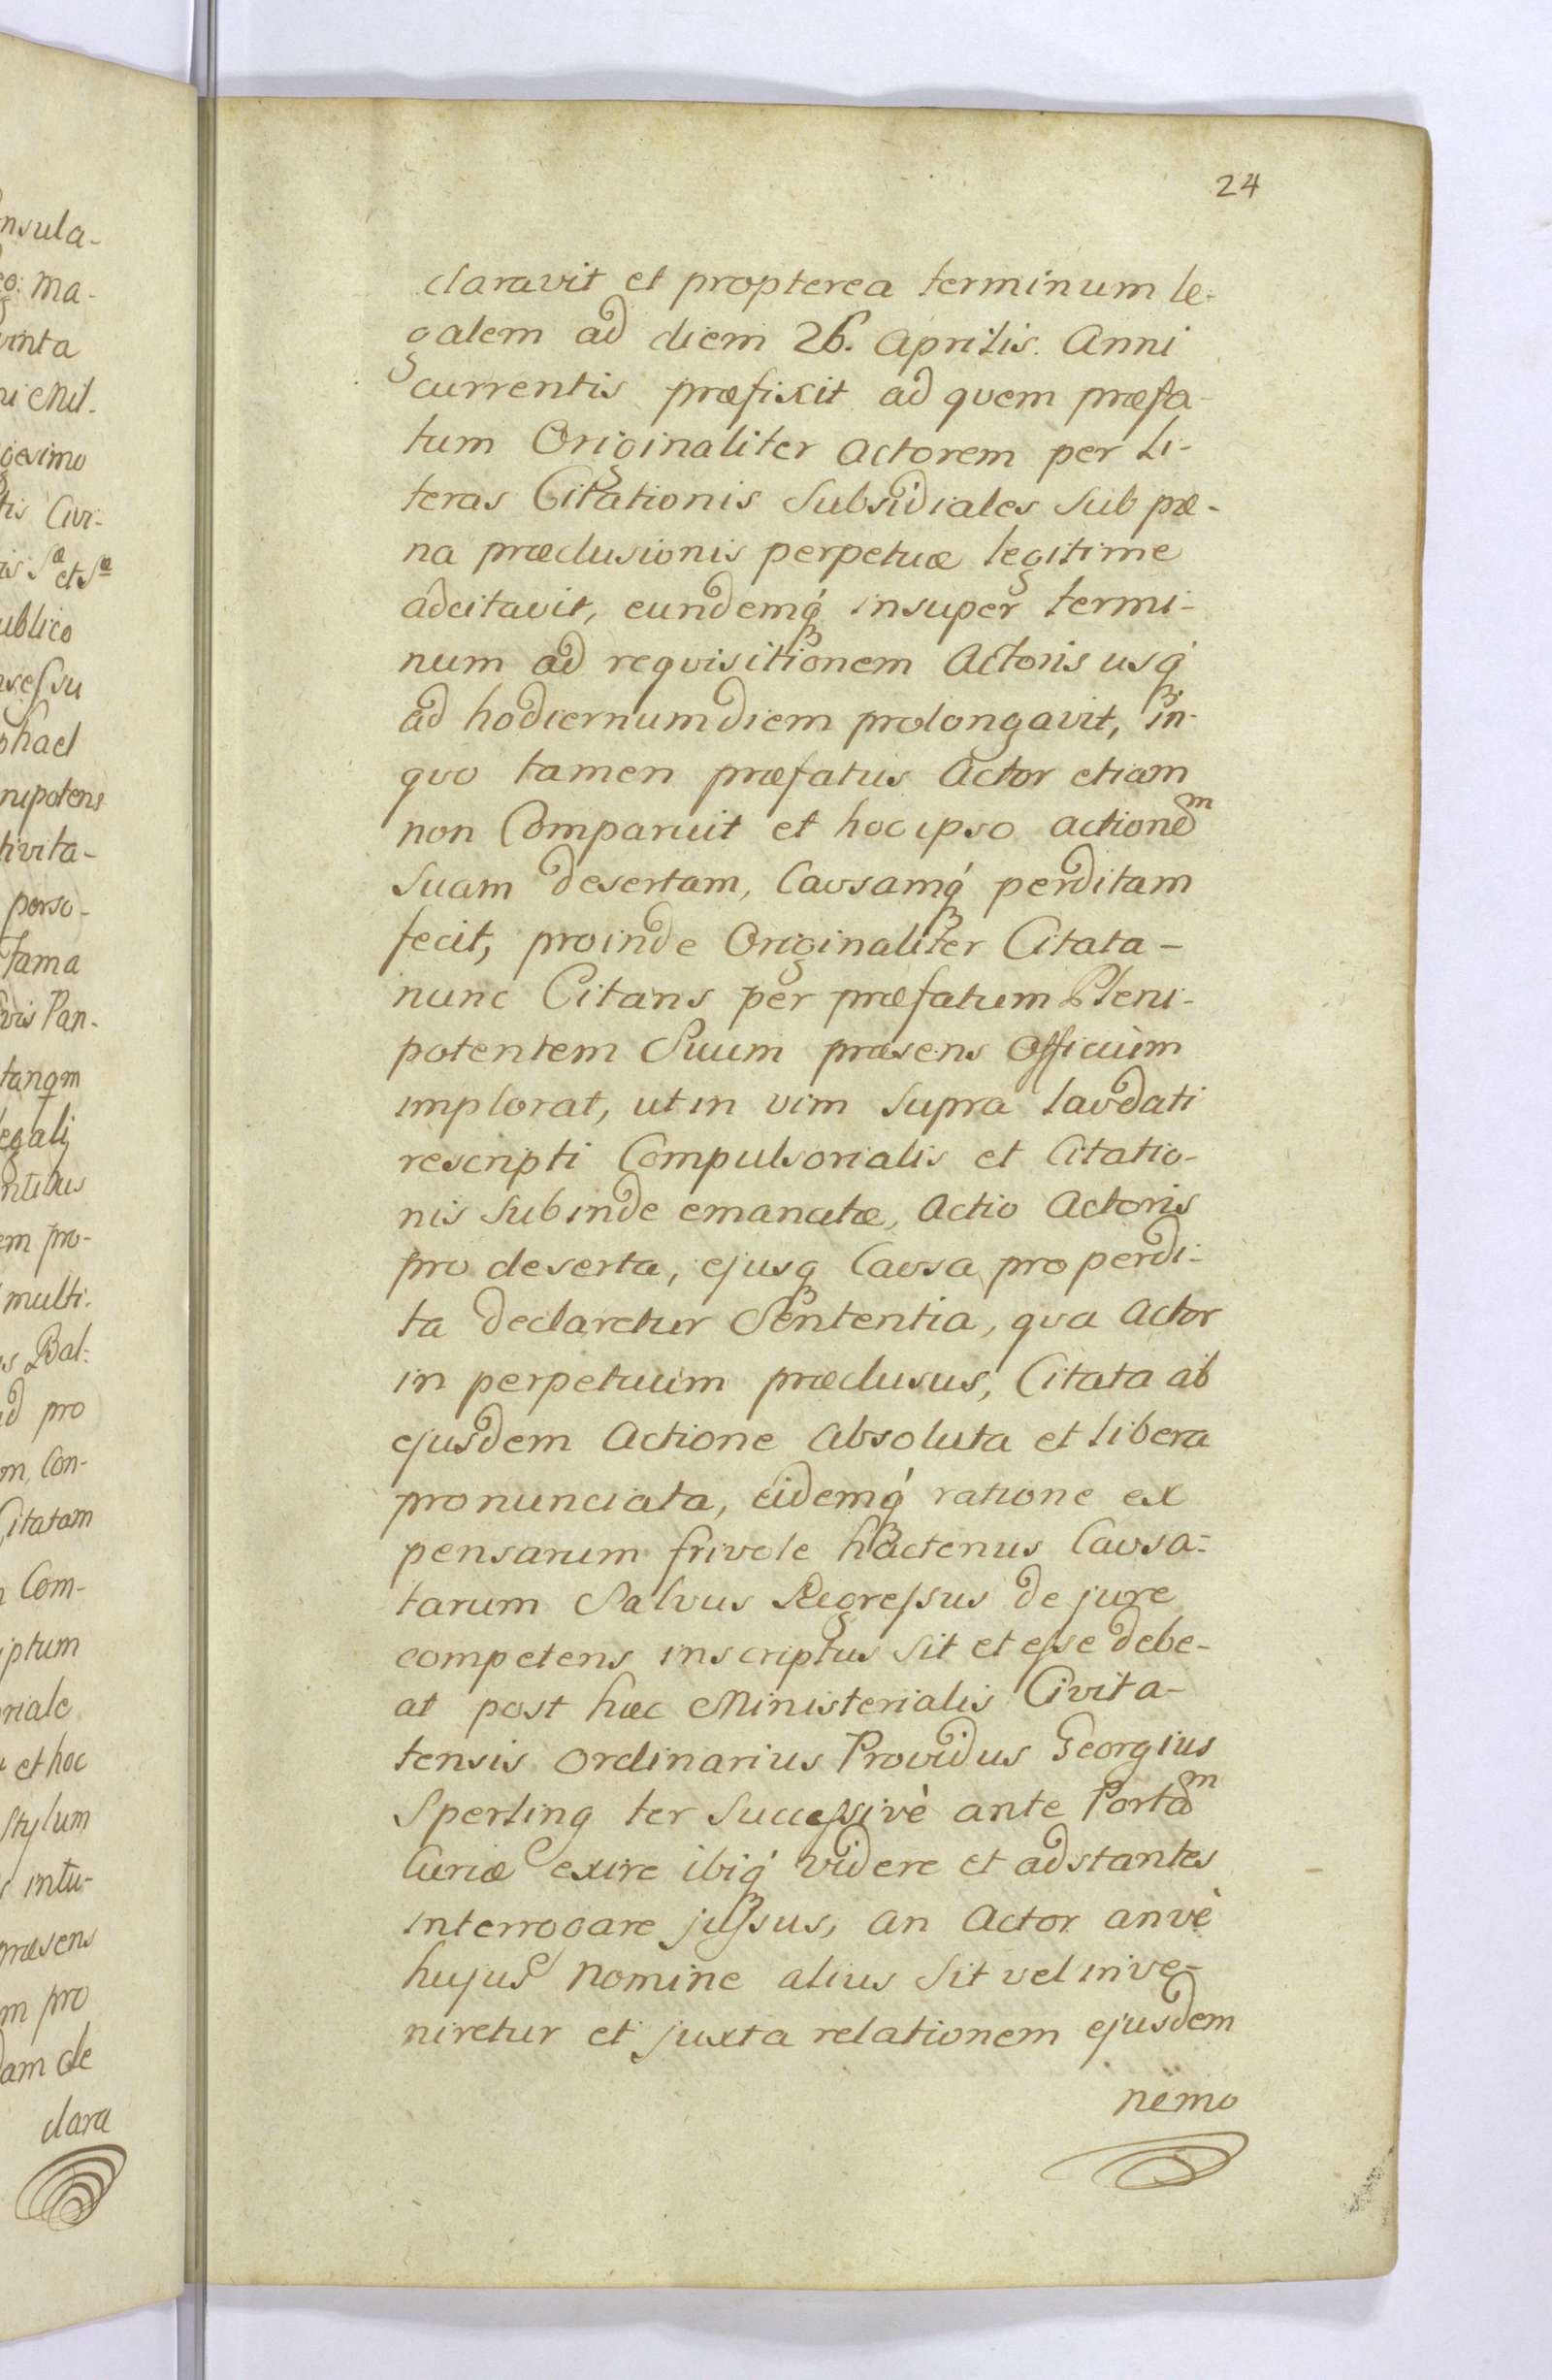 24
claravit et propterea terminum le-
galem ad diem 26. Aprilis. Anni
currentis præfixit ad quem præfa-
tum Originaliter Actorem per Li-
teras Citationis Subsidiales Sub pœ-
na præclusionis perpetuæ legitime
adcitavit, eundemq́ insuper termi-
num ad requisitionem Actoris usq́
ad hodiernum diem prolongavit, in-
quo tamen præfatus Actor etiam
non Comparuit et hoc ipso actionem
Suam desertam, Causamq́ perditam
fecit, proinde Originaliter Citata-
nunc Citans per præfatum Pleni-
potentem Suum præsens Officium
implorat, ut in vim Supra laudati
rescripti Compulsorialis et Citatio-
nis Subinde emanatæ, Actio Actoris
pro deserta, ejusq Causa pro perdi-
ta declaretur Sententia, qua Actor
in perpetuum præclusus, Citata ab
ejusdem Actione Absoluta et libera
pronunciata, eidemq́ ratione ex
pensarum frivole hactenus Causa-
tarum Salvus Regressus de jure
competens inscriptus Sit et esse debe-
at post hæc Ministerialis Civita-
tensis Ordinarius Providus Georgius
Sperling ter Successivè ante Portam
Curiæ exire ibiq́ videre et adstantes
interrogare jussus, an Actor anvè
hujus nomine alius Sit vel inve-
niretur et juxta relationem ejusdem
nemo
nsula-
Ma-
ginta
gesimo
Civi-
et Sæ
ublico
phael
nipotens
tivita-
perso-
fama
Pan-
tanqm
egali
ntibus
em pro-
multi-
Bal:
pro
Con-
Citatam
Com-
iptum
riale
et hoc
Stylum
intu-
præsens
m pro
dam de
clara